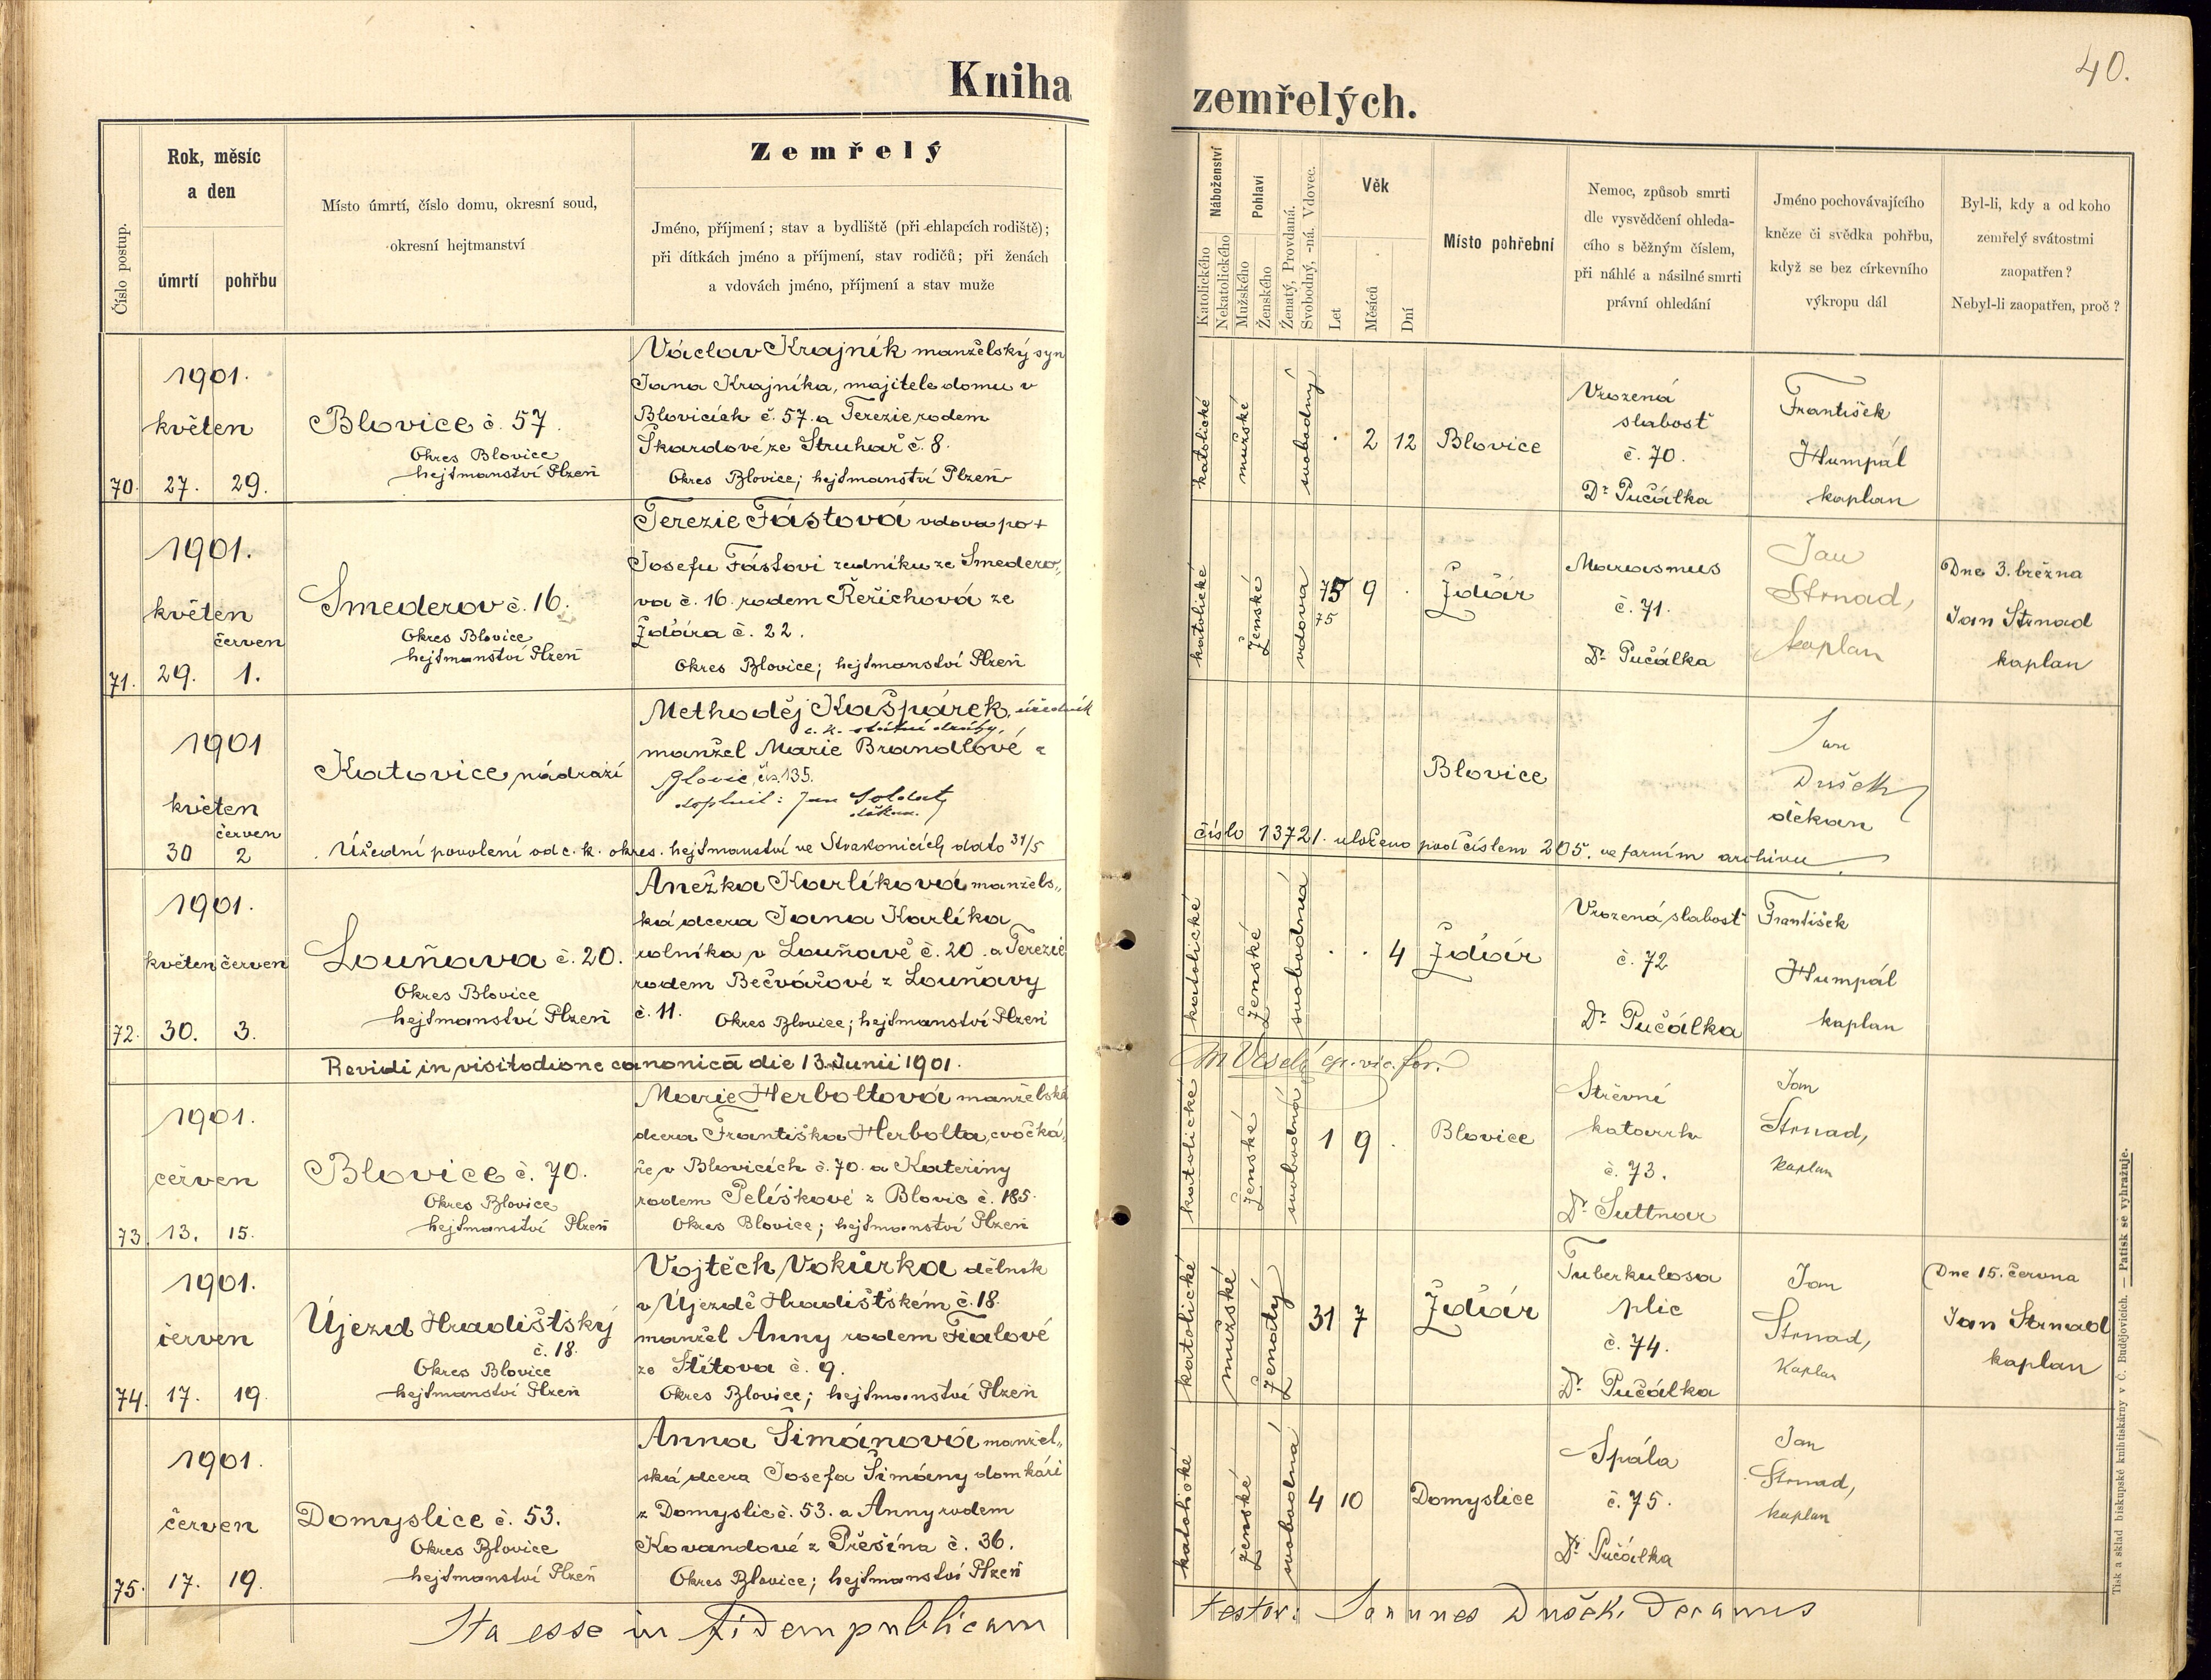 Kniha zemřelých.
40.
Číslo postup.
Rok, měsíc
a den
úmrtí
pohřbu
Místo úmrtí, číslo domu, okresní soud,
okresní hejtmanství
Zemřelý
Jméno, příjmení; stav a bydliště (při chlapcích rodiště);
při dítkách jméno a příjmení, stav rodičů; při ženách
a vdovách jméno, příjmení a stav muže
Náboženství
Katolického
Nekatolického
Pohlaví
Mužského
Ženského
Ženatý, Provdaná.
Svobodný, -ná. Vdovec.
Věk
Let
Měsíců
Dní
Místo pohřební
Nemoc, způsob smrti
dle vysvědčení ohleda-
cího s běžným číslem,
při náhlé a násilné smrti
právní ohledání
Jméno pochovávajícího
kněze či svědka pohřbu,
když se bez církevního
výkropu dál
Byl-li, kdy a od koho
zemřelý svátostmi
zaopatřen?
Nebyl-li zaopatřen, proč?
70.
1901.
květen
27. 29.
Blovice č. 57.
Okres Blovice
hejtmanství Plzeň
Václav Krajník manželský syn
Jana Krajníka, majitele domu v
Blovicích č. 57. a Terezie rodem
Škardové ze Struhař č. 8.
Okres Blovice; hejtmanství Plzeň
katolické
mužské
svobodný
. 2 12
Blovice
Vrozená
slabosť
č. 70.
Dr Pučálka
František
Humpál
kaplan
71.
1901.
květen
červen
29. 1.
Smederov č. 16.
Okres Blovice
hejtmanství Plzeň
Terezie Fástová vdova po +
Josefu Fástovi zedníku ze Smedero„
va č. 16. rodem Řeřichová ze
Žďára č. 22.
Okres Blovice; hejtmanství Plzeň
katolické
ženské
vdova
75 9 .
75
Žďár
Marasmus
č. 71.
Dr Pučálka
Jan
Strnad,
kaplan
Dne 3. března
Jan Strnad
kaplan
1901
květen
červen
30 2
Katovice nádraží
Methoděj Kašpárek, úředník
c. k. státní dráhy,
manžel Marie Brandlové z
Blovic čís. 135.
doplnil: Jan Soldat,
děkan.
Blovice
Jan
Dušek
děkan
. Úřední povolení od c. k. okres. hejtmanství ve Strakonicích dato 31/5
číslo 13721. uloženo pod číslem 205. ve farním archivu.
72.
1901.
květen červen
30. 3.
Louňava č. 20.
Okres Blovice
hejtmanství Plzeň
Anežka Karlíková manžels„
ká dcera Jana Karlíka
rolníka v Louňavě č. 20. a Terezie
rodem Bečvářové z Louňavy
č. 11. Okres Blovice; hejtmanství Plzeň
katolické
ženské
svobodná
. . 4
Žďár
Vrozená slabosť
č. 72
Dr Pučálka
František
Humpál
kaplan
Revidi in visitatione canonicā die 13. Junii 1901.
M Veselý ep. vic. for.
73.
1901.
červen
13. 15.
Blovice č. 70.
Okres Blovice
hejtmanství Plzeň
Marie Herboltová manželská
dcera Františka Herbolta, cvočká„
ře v Blovicích č. 70. a Kateřiny
rodem Pelíškové z Blovic č. 185.
Okres Blovice; hejtmanství Plzeň
katolické
ženské
svobodná
1 9 .
Blovice
Střevní
katarrh
č. 73.
Dr Suttnar
Jan
Strnad,
kaplan
74.
1901.
červen
17. 19.
Újezd Hradišťský
č. 18.
Okres Blovice
hejtmanství Plzeň
Vojtěch Vokurka dělník
v Újezdě Hradištském č. 18.
manžel Anny rodem Fialové
ze Štítova č. 9.
Okres Blovice; hejtmanství Plzeň
katolické
mužské
ženatý
31 7
Žďár
Tuberkulosa
plic
č. 74.
Dr Pučálka
Jan
Strnad,
Kaplan
Dne 15. června
Jan Strnad
kaplan
75.
1901.
červen
17. 19.
Domyslice č. 53.
Okres Blovice
hejtmanství Plzeň
Anna Šimánová manžel„
ská dcera Josefa Šimány domkáři
z Domyslic č. 53. a Anny rodem
Kovandové z Přešína č. 36.
Okres Blovice; hejtmanství Plzeň
katolické
ženské
svobodná
4 10
Domyslice
Spála
č. 75.
Dr Pučálka
Jan
Strnad,
kaplan
Ita esse in fidem publicam testor: Joannes Dušek, Decanus
Tisk a sklad biskupské knihtiskárny v Č. Budějovicích. — Patisk se vyhražuje.